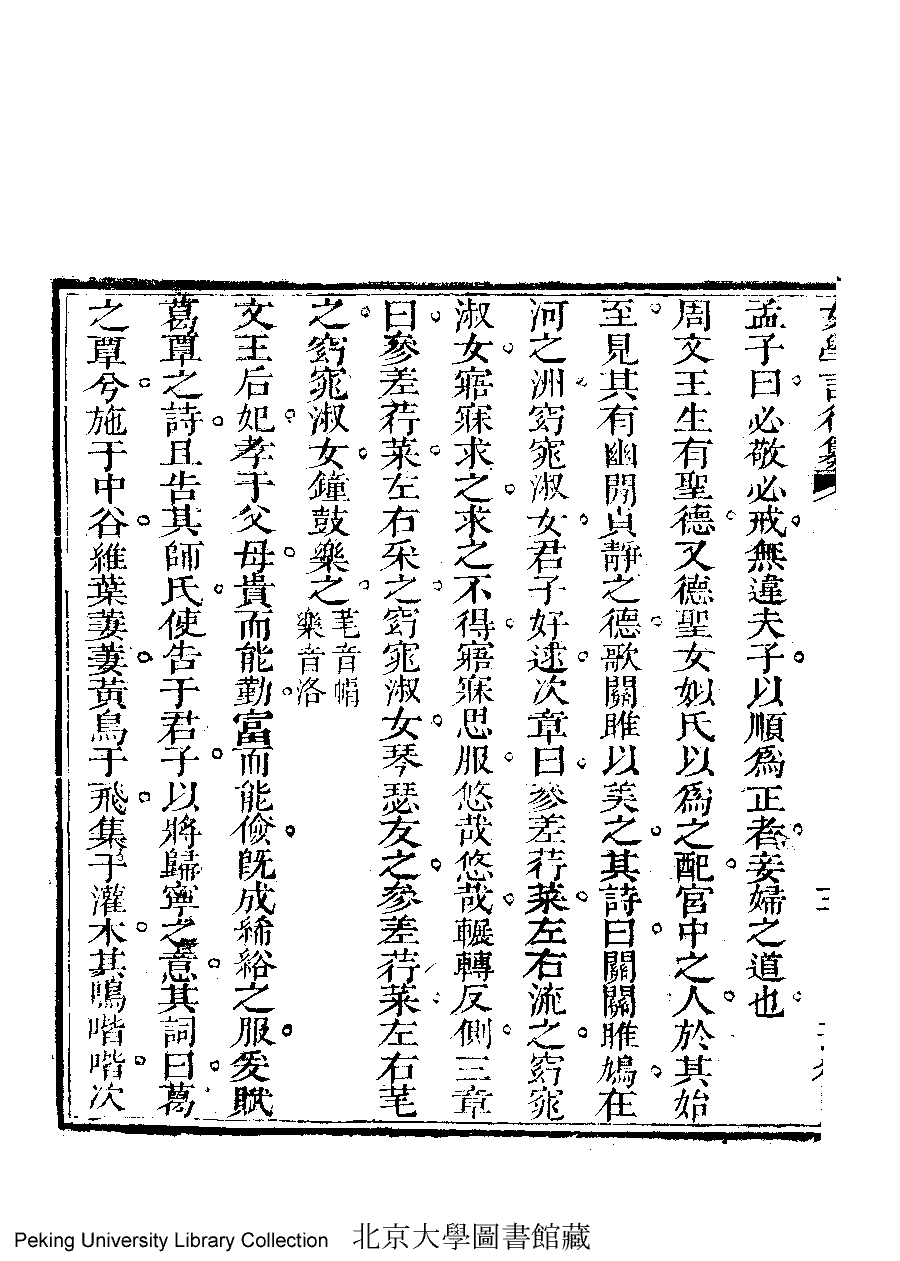 孟子曰必敬必戒無違夫子以順爲正者妾婦之道也
周文王生有聖德又德聖女姒氏以爲之配宮中之人於其始
至見其有幽閒貞靜之德歌關雎以美之其詩曰關關雎鳩在
河之洲窈窕淑女君子好逑次章曰參差荇菜左右流之窈窕
淑女寤寐求之求之不得寤寐思服悠哉悠哉輾轉反側三章
曰參差荇菜左右采之窈窕淑女琴瑟友之參差荇菜左右芼
之窈窕淑女鐘鼓樂之
芼音帽
樂音洛
文王后妃孝于父母貴而能勤富而能儉旣成絺綌之服爰賦
葛覃之詩且告其師氏使告于君子以將歸寧之意其詞曰葛
之覃兮施于中谷維葉萋萋黃鳥于飛集于灌木其鳴喈喈次
Peking University Library Collection 北京大學圖書館藏